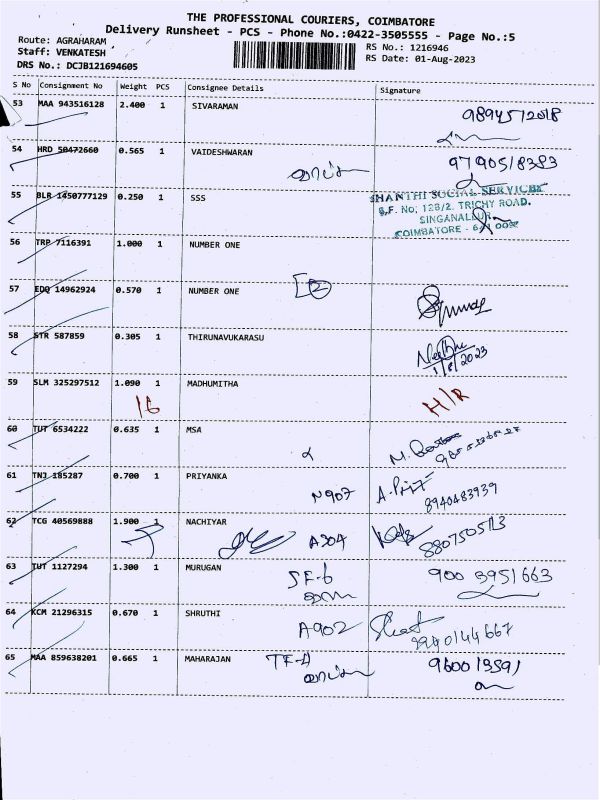 THE PROFESSIONAL COURIERS, COIMBATORE
Delivery Runsheet - PCS - Phone No.:0422-3505555 - Page No.:5
Route: AGRAHARAM
Staff: VENKATESH
DRS No.: DCJB121694605
RS No.: 1216946
RS Date: 01-Aug-2023
S No Consignment No Weight PCS Consignee Details Signature
53 MAA 943516128 2.400 1 SIVARAMAN
9894572018
54 HRD 50472660 0.565 1 VAIDESHWARAN
9790518383
55 BLR 1450777129 0.250 1 SSS
SHANTHI SOCIAL SERVICES
S.F. No. 128/2, TRICHY ROAD.
SINGANALLUR,
COIMBATORE - 641 005
56 TRP 7116391 1.000 1 NUMBER ONE
57 EDQ 14962924 0.570 1 NUMBER ONE
58 STR 587859 0.305 1 THIRUNAVUKARASU
1/8/2023
59 SLM 325297512 1.090 1 MADHUMITHA
16 H/R
60 TUT 6534222 0.635 1 MSA
61 TNJ 185287 0.700 1 PRIYANKA
N907
8940483939
62 TCG 40569888 1.900 1 NACHIYAR
A304
63 TUT 1127294 1.300 1 MURUGAN
SF-6 900 3951663
64 KCM 21296315 0.670 1 SHRUTHI
A902
9940144667
65 MAA 859638201 0.665 1 MAHARAJAN
TF-A